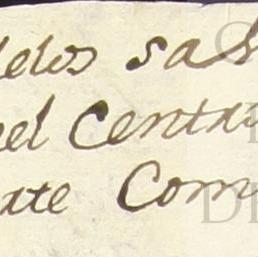 delos sal
el Centra
ate Com